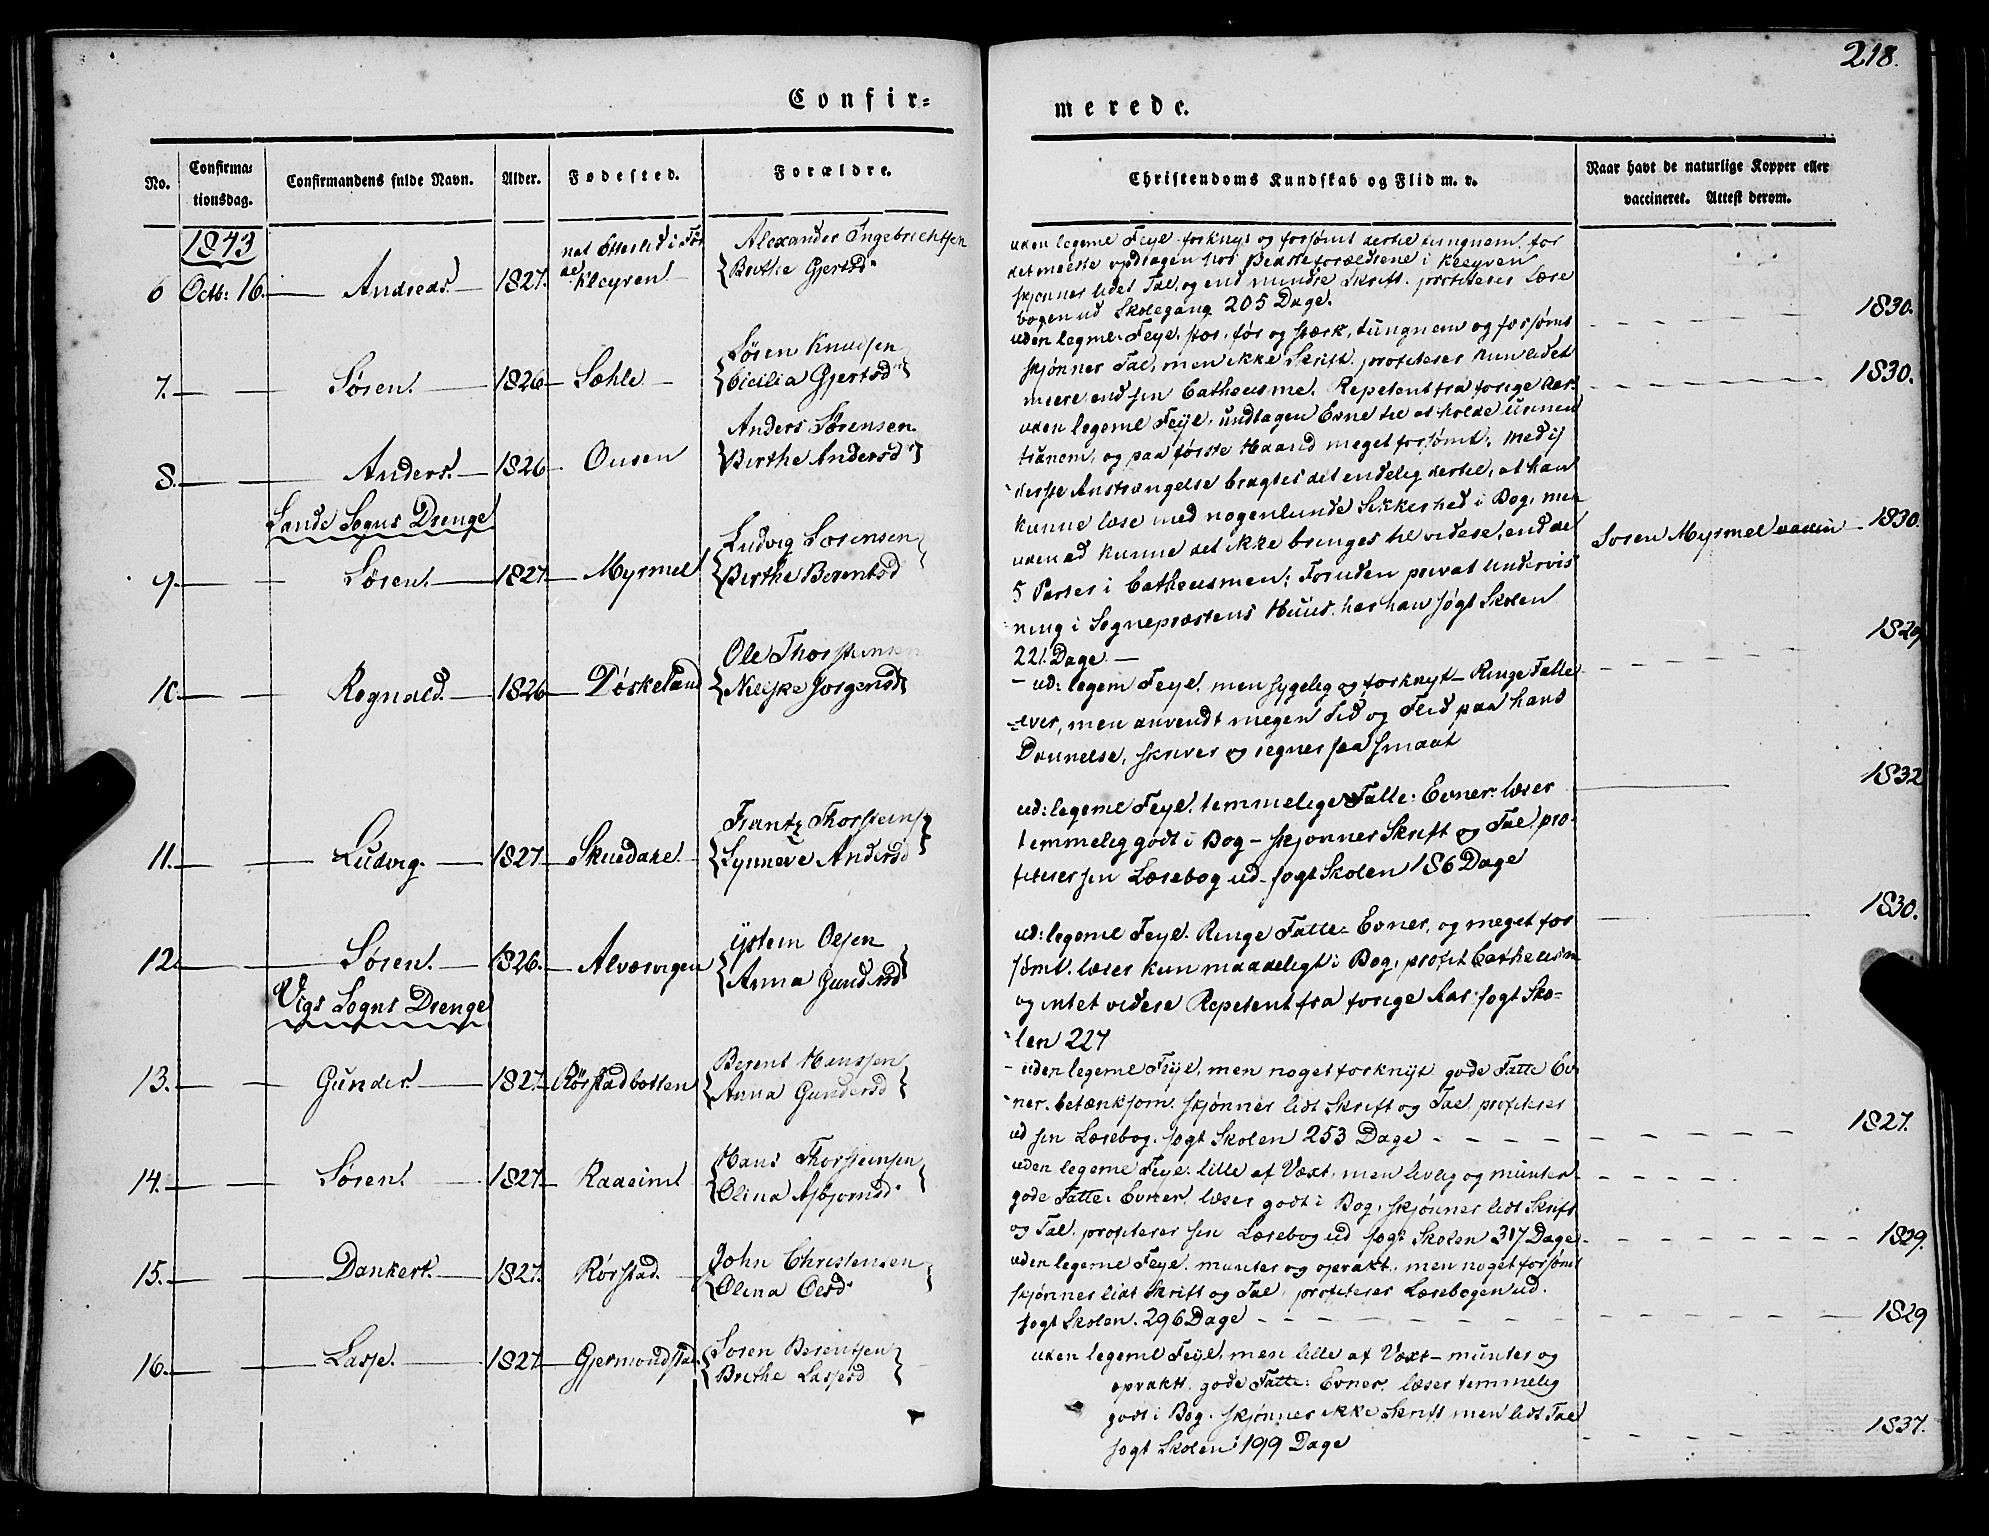 218.
Confir=
merede.
No.
Confirma=
tionsdag.
Confirmandens fulde Navn.
Alder.
Fødested.
Forældre.
Christendoms Kundskab og Flid m. v.
Naar havt de naturlige Kopper eller
vaccineret. Attest derom.
1843
6 Octb: 16. Andreas. 1827. Kleyven Alexander Ingebrichtsen
Birthe Gjertsd
uden legeme Feyl forknyt og forsømt dertil tungnem, for
det meeste opdragen hos Bedsteforældrene i Kleyven
skjønner lidet Tal, og end mindre Skrift. profiterer Læse
bogen ud Skolegang 205 Dage.
1830.
7. Søren. 1826 Sæhle Søren Knudsen
Cicilia Gjertsd
uden legme Feyl, stor, før og stærk, tungnem og forsømt
skjønner Tal, men ikke Skrift, profiterer kun lidet
meere end sin Cathecisme. Repetent fra forige Aar
1830.
8. Anders. 1826 Ousen Anders Sørensen
Birthe Andersd
uden legeme Feyl, undtagen Evne til at holde Urinen
tranem, og paa første Haand meget forsømt; med ij
derste Anstrængelse bragtes det endelig dertil, at han
kunne læse med nogenlunde Sikkerhed i Bog, men
uden at kunne det ikke bringes til videre, end de
5 Parter i Cathecismen; Foruden privat Undervis
ning i Sognepræstens Huus, har han søgt Skolen
221 Dage
1830
Sande Sogns Drenge
9. Søren. 1827. Myrmel Ludvig Sørensen
Birthe Berentsd
Søren Myrmel vaccin
1829
10. Rognald. 1826 Døskeland Ole Thorstensen
Neljke Jørgensd
ud: legem Feyl, men sygelig og forknyt - Ringe Fatte
ever, men anvendt megen Tid og Flid paa hans
Dannelse, skriver og regner saa smaat
1832
11. Ludvig. 1827 Skuedale Frantz Thorsteins
Synneve Andersd
ud: legeme Feyl, temmelige Fatte: Evner. læser
temmelig godt i Bog - skjønner Skrift og Tal pro-
fiterer sin Læsebog ud - søgt Skolen 186 Dage
1830.
12. Søren. 1826. Alværvigen Ystein Olsen
Anna Gundersd
ud: legeme Feyl. Ringe Fatte: Evner, og meget for
sømt. læser kun maadeligt i Bog, profit Cathecism
og intet videre Repetent fra forige Aar søgt Sko-
len 227
Vigs Sogns Drenge
13. Gunder. 1827. Rørstadbotten Berent Hanssen
Anna Gundersd
uden legeme Feyl, men noget forknyt gode Fatte Ev
ner. betænksom. skjønner lidt Skrift og Tal profiterer
ud sin Læsebog. søgt Skolen 253 Dage
1827.
14. Søren. 1827. Raaeim Hans Thorsteinsen
Olina Asbjørnsd
uden legeme Feyl: lille af Væxt, men livlig og munter
gode Fatte: Evner, læser godt i Bog, skjønner lidt Skrift
og Tal, profiterer sin Læsebog ud søgt Skolen 317 Dage
1829.
15. Dankert. 1827. Rørstad. John Christensen
Olina Olsd
uden legeme Feyl, munter og opvakt, men noget forsømt
skjønner lidt Skrift og Tal, profiterer Læsebogen ud.
søgt Skolen. 296 Dage
1829
16. Lasse. 1827. Gjermondstad. Søren Berentsen
Brithe Lassesd
uden legeme Feyl, men lille af Væxt - munter og
opvakt. gode Fatte: Evner, læser temmelig
godt i Bog. skjønner ikke Skrift men lidt Tal
søgt Skolen 199 Dage
1837.